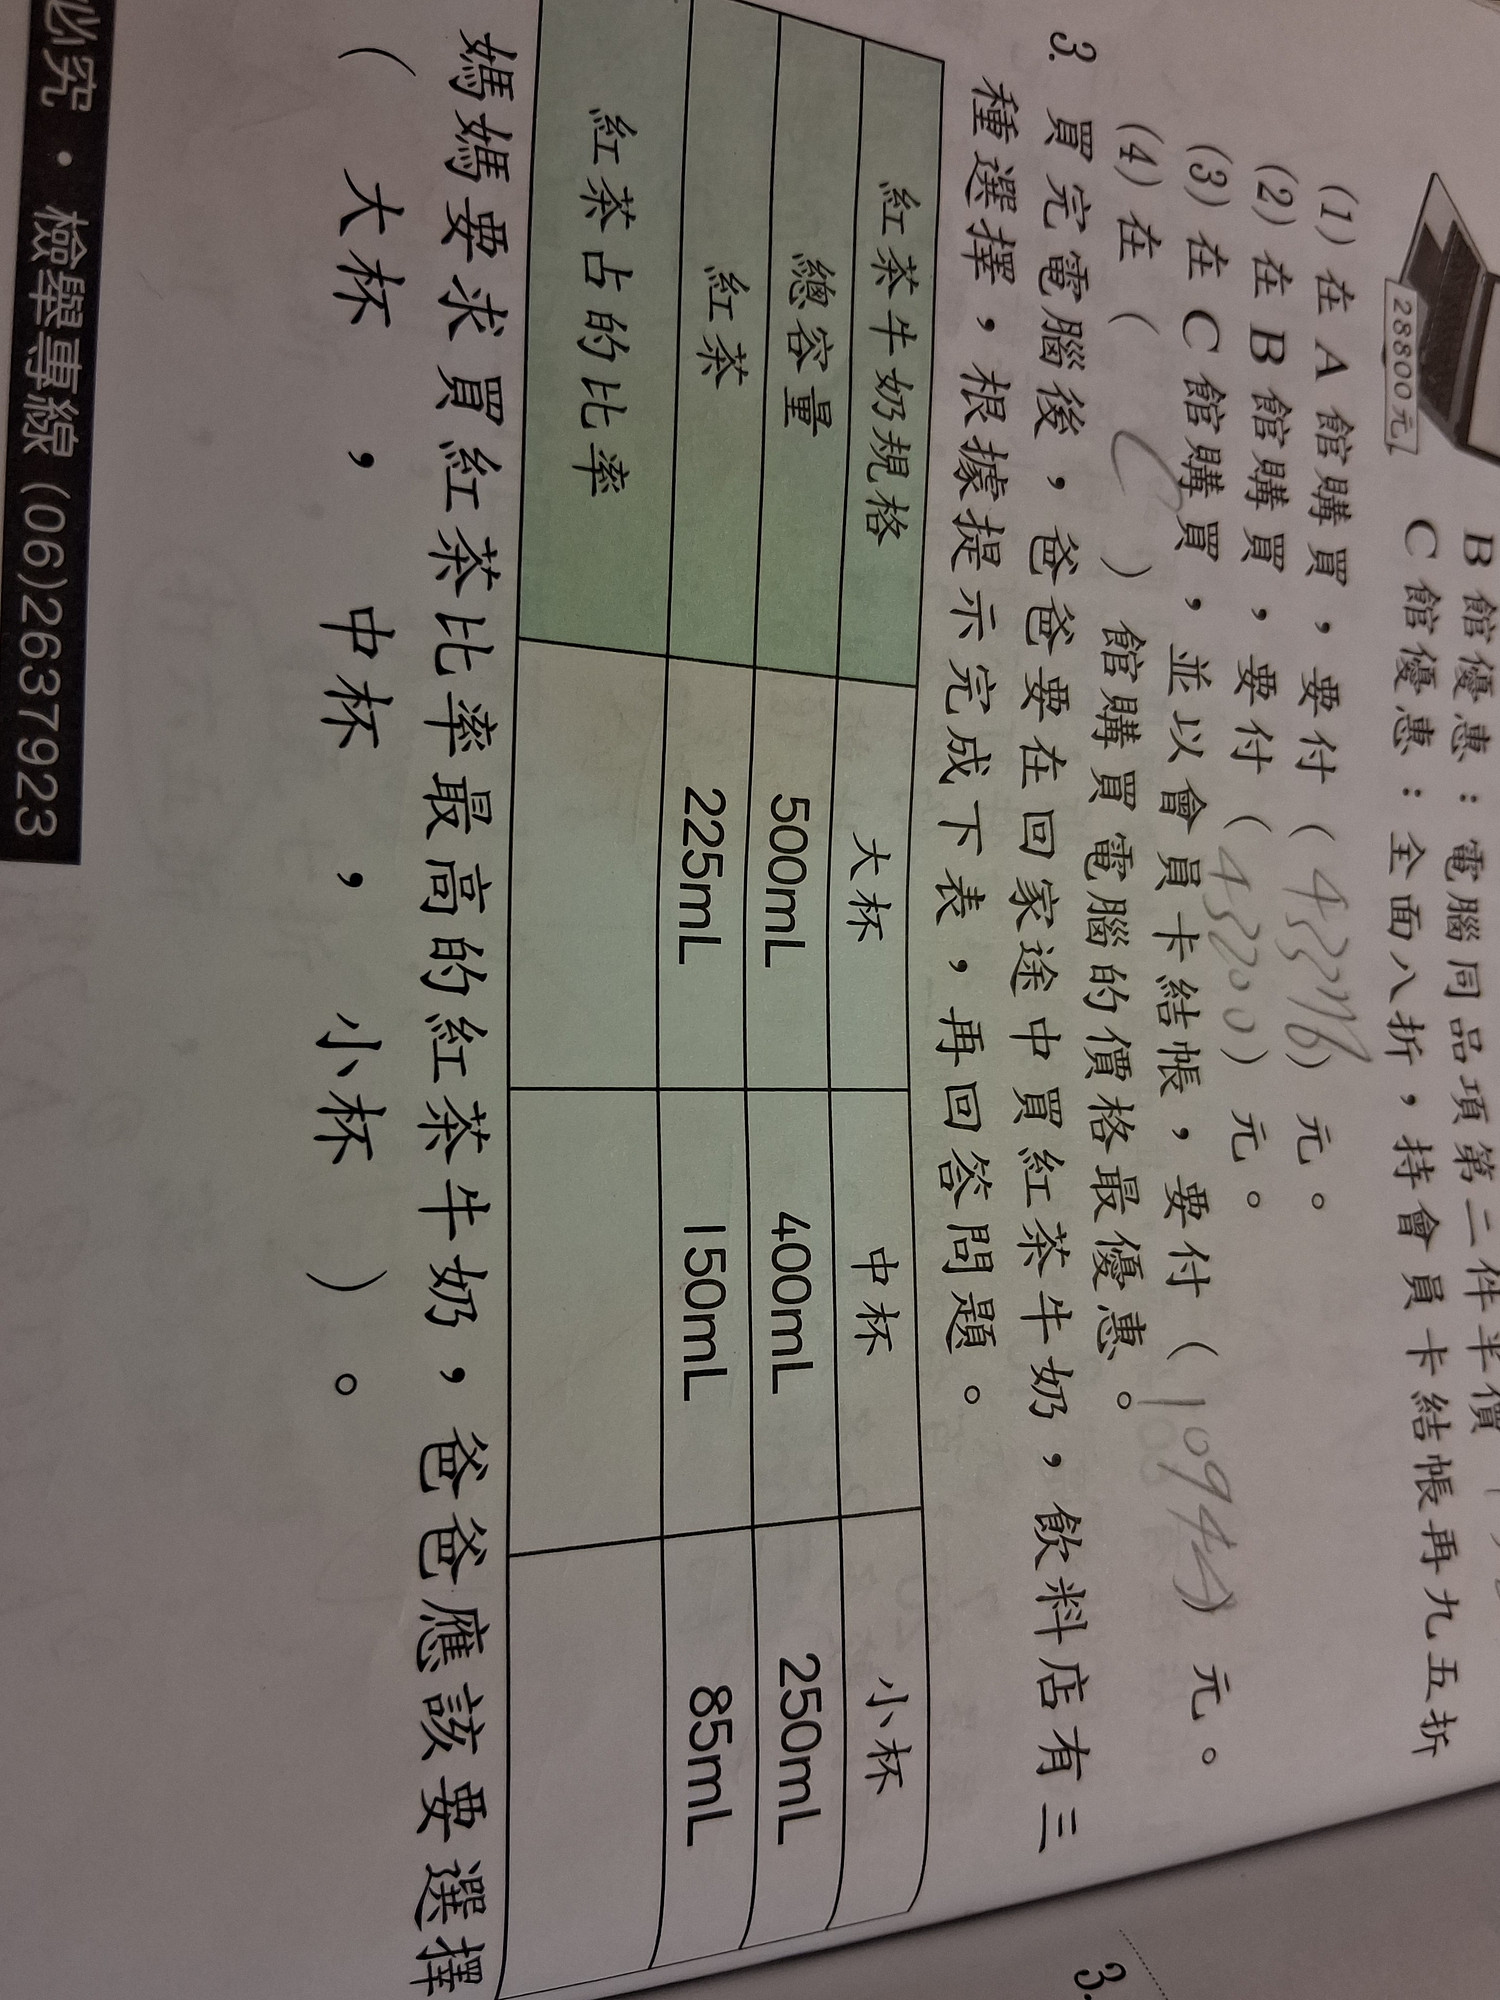 28800元
B館優惠：電腦同品項第二件半價
C館優惠：全面八折，持會員卡結帳再九五折
(1)在A館購買，要付( )元。
(2)在B館購買，要付(43200)元。
(3)在C館購買，並以會員卡結帳，要付( )元。
(4)在( C )館購買電腦的價格最優惠。
3. 買完電腦後，爸爸要在回家途中買紅茶牛奶，飲料店有三
種選擇，根據提示完成下表，再回答問題。
紅茶牛奶規格 大杯 中杯 小杯
總容量 500mL 400mL 250mL
紅茶 225mL 150mL 85mL
紅茶占的比率
媽媽要求買紅茶比率最高的紅茶牛奶，爸爸應該要選擇
( 大杯，中杯，小杯 )。
必究・檢舉專線 (06)2637923
3.